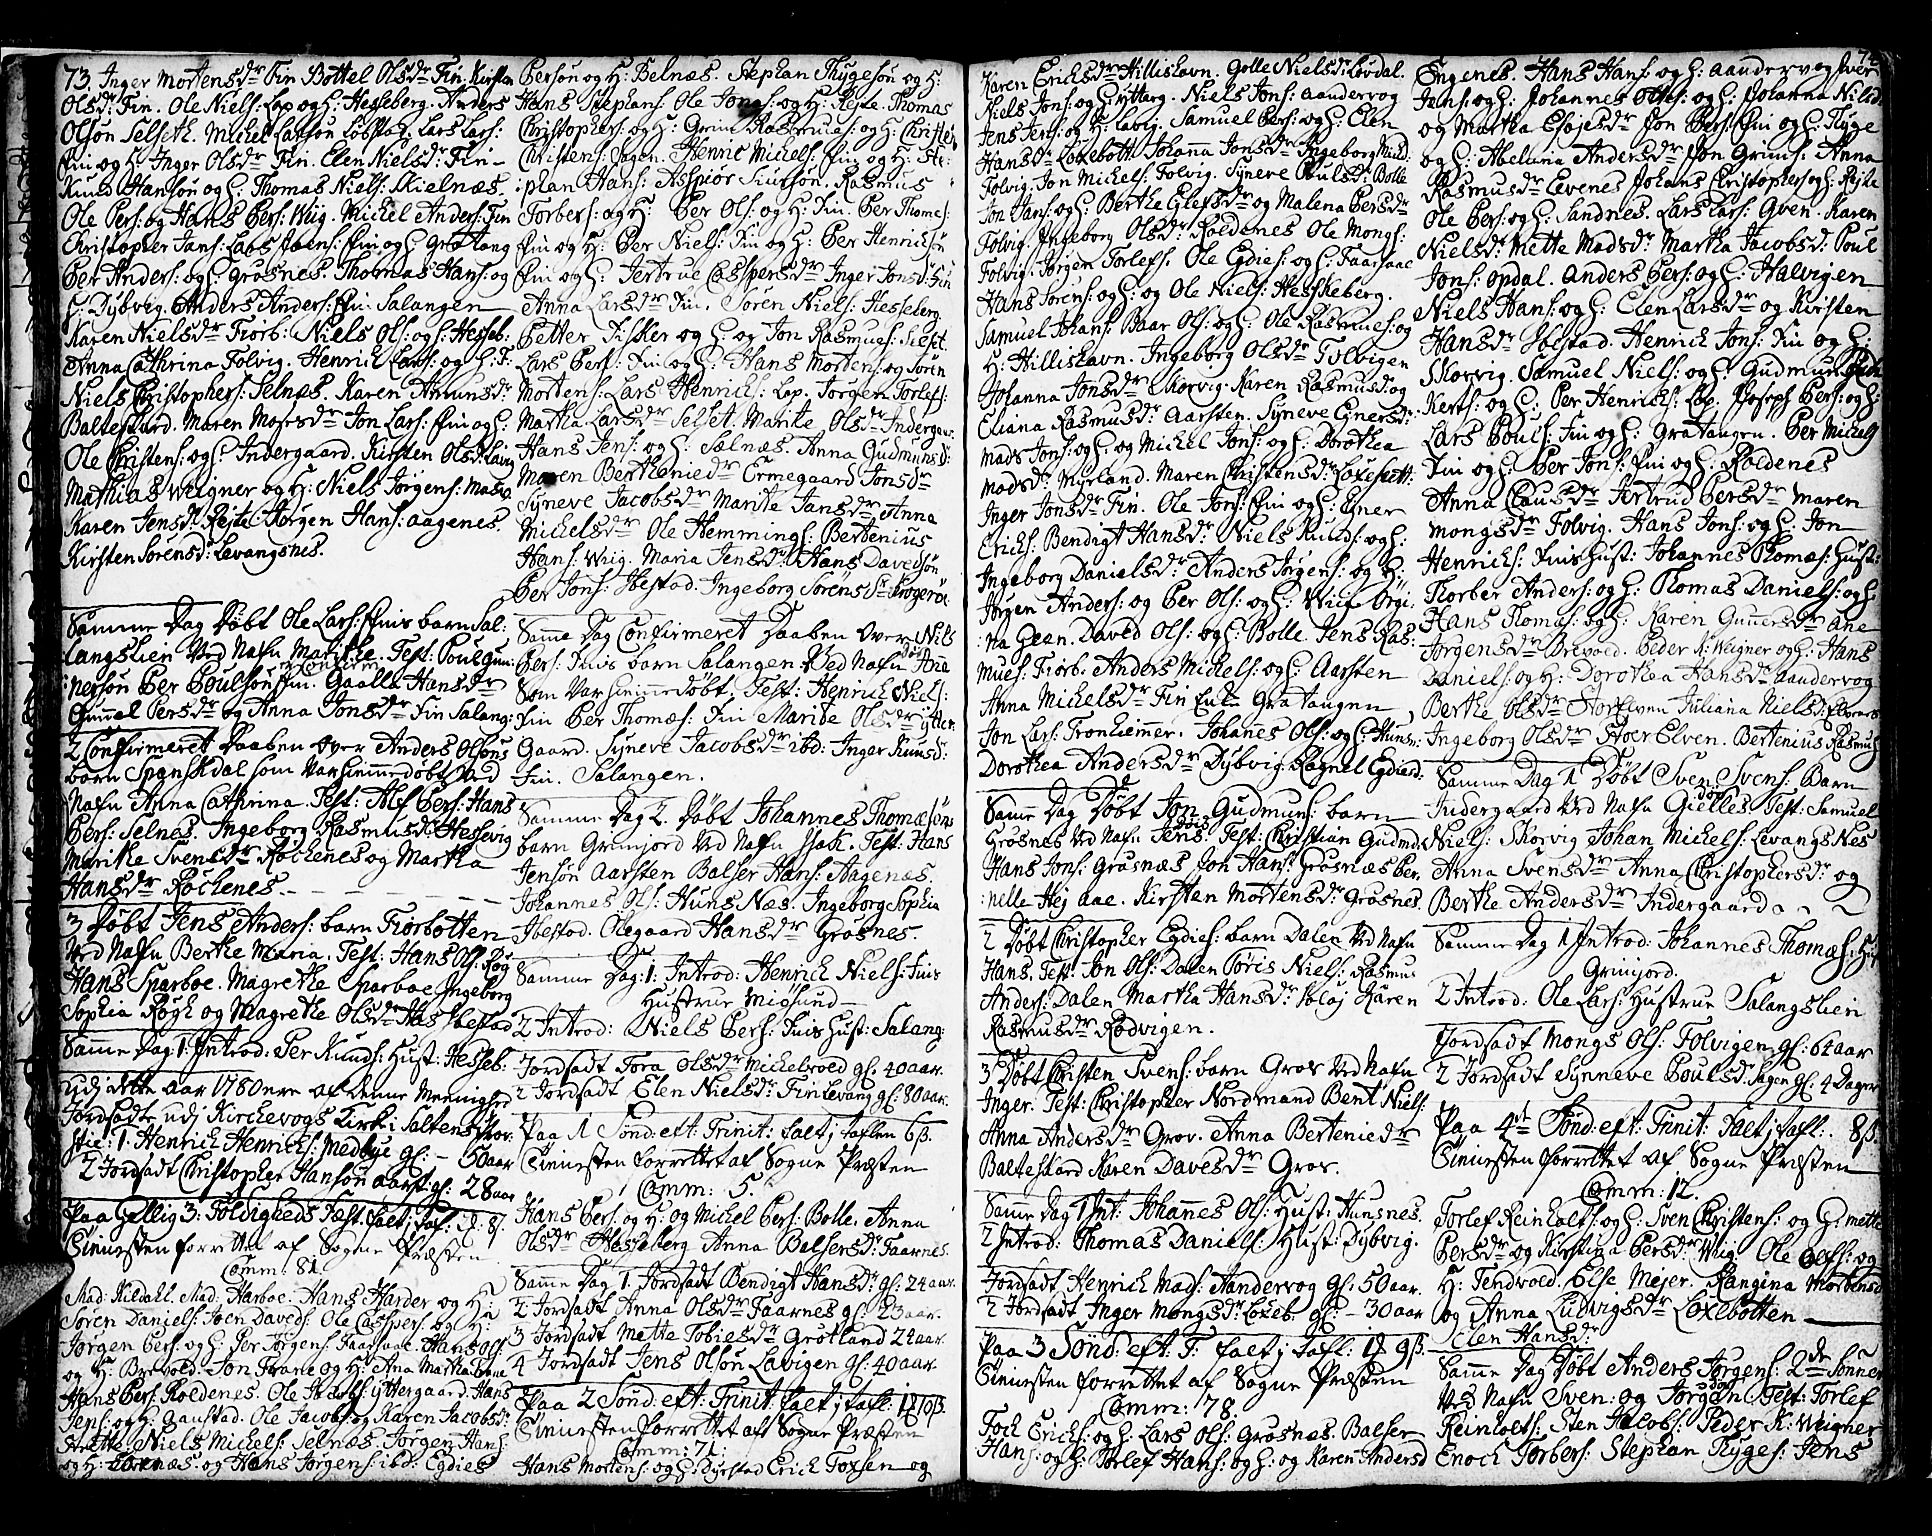 73. Inger Mortensdr Fin Bottel Olsdr Fin. Kirsten
Olsdr Fin. Ole Niels: Lap og H: Hesseberg. Anders
Olsøn Selseth. Michel Larsøn Løbstad. Lars Lars:
Fin og H: Inger Olsdr Fin. Elen Nielsdr Fin
Knud Hansøn og H: Thomas Niels: Skielnæs.
Ole Pers: og Hans Pers: Wiig. Michel Anders: Fin
Christopher Jans: Lars Joens: Fin og H: Gratang
Per Anders: og H: Grøsnes. Thomas Hans: og
H: Dybvig. Anders Anders: Fin Salangen
Karen Nielsdr Fiorb: Niels Ols: og H: Hesseb.
Anna Cathrina Folvig. Henrich Lars: og H: F:
Niels Christophers: Selnæs. Karen Amundsdr
Balteskard. Maren Mogesdr Jon Lars: Fin og H:
Ole Christens: og H: Indergaard. Kirsten Olsdr Lavig
Mathias Weigner og H: Niels Jørgens:
Karen Jensdr Rejte Jørgen Hans: Aagenes.
Kirsten Sørensdr Levangsnes.
Samme Dag Døbt Ole Lars: Fins barn Sal:
langslien Ved Nafn Marithe. Test: Poul Gun:
:nersøn Per Poulsøn Fin. Gaalla Hansdr
Gunnel Persdr og Anna Jonsdr Fin Salang:
2 Confirmeret Daaben Over Anders Olsøns
barn Spanskdal som Var hiemmedøbt Ved
Nafn Anna Cathrina. Test: Alf Pers: Hans
Pers: Selnes. Ingeborg Rasmusdr Hessevig
Marithe Svensdr Røckenes og Martha
Hansdr Røckenes.
3 Døbt Jens Anders: barn Fiorbotten
Ved Nafn Berthe Maria. Test: Hans Ols: Røg
Hans Sparboe. Magrethe Sparboe Ingeborg
Sophia Røgh og Magrethe Olsdr Ibestad
Samme Dag 1: Introd: Per Knuds: Hust: Hesseb:
udj dette aar 1780 ere af denne Meenighed
Jordsadt udj Kirchevogs Kirke i Saltens
stie: 1: Henrich Henrichs: Medbye gl: - 50 aar
2 Jordsadt Christopher Hansøn aarst: gl: 28 aar
Paa Hellig 3: Foldigheds Fæst falt i Tafl:
Tienesten forrettet af Sogne Præsten
Comm: 81
Mad: Kildahl. Mad: Harboe. Hans Harder og H:
Søren Daniels: Joen Daveds: Ole Caspers: og H:
Jørgen Pers: og H: Per Jørgens: Faarsaae. Hans Ols:
og H: Brevold. Jon Frane og H: Ana Martha
Hans Pers: Roldenes. Ole Yttergaard. Hans
Jens: og H: Gaustad. Ole Jacobs: og Karen Jacobsdr
Niels Michels: Selnæs Jørgen Hans:
og H: og Hans Jørgens: ibd: Egdies
Persøn og H: Belnæs. Stephan Thygesøn og H:
Hans Stephans: Ole Jonas: og H: Reste. Thomas
Christophers: og H: Grim Rasmus: og H: Christen
Christens: Sagen. Henric Michels: Fin og H: Ste:
:phan Hans: Asspiør Siursøn. Rasmus
Torbers: og H: Per Ols: og H: Fin. Per Thomes:
Fin og H: Per Niels: Fin og H: Per Henrichsøn
Fin og H: Jertrue Caspersdr Inger Jonsdr Fin
Anna Larsdr Fin. Søren Niels: Hesseberg
Petter Fisker og H: og Jon Rasmus: Selset.
Lars Pers: Fin og H: Hans Mortens: og Søren
Mortens: Lars Henrichs: Lap. Jørgen Torlefs:
Martha Larsdr Selset. Marite Olsdr Indergaar:
Hans Jens: og H: Sælnæs. Anna Gudmunsd:
Maren Berthiniedr Ermegaard Jonsdr
Syneve Jacobsdr Marite Jansdr Anna
Michelsdr Ole Hemmings: Bertenius
Hans: Wiig. Maria Jensdr Hans Davedsøn
Per Jons: Ibestad. Ingeborg Sørensdr Krogerøe
Samme Dag Confirmeret Daaben Over Niels
Pers: Fins barn Salangen Ved Nafn
Som Var hiemmedøbt. Test: Henrich Niels:
Fin Per Thomæs: Fin Marite Olsdr Ytter
Gaard. Syneve Jacobsdr ibd: Inger Knudsd:
Fin. Salangen.
Samme Dag 2. Døbt Johannes Thomæsøns
barn Grimjord Ved Nafn Isak. Test: Hans
Jensøn Aarsten Balser Hans: Aagenæs.
Johannes Ols: Huns Næs. Ingeborg Sophia
Ibestad. Olegaard Hansdr Grøsnes.
Samme Dag: 1: Introd: Henrich Niels: Fins
Hustrue Miøsund
2 Introd: Niels Pers: Fins Hust: Salang:
Jordsadt Tora Olsdr Michelvoed gl: 40 aar.
2 Jordsadt Elen Nielsdr Fin Levang gl: 80 aar.
Paa 1 Sønd: eft: Trinit: falt i Taflen 6 ß.
Tienesten forrettet af Sogne Præsten
Comm: 5.
Hans Pers: og H: og Michel Pers: Bolle. Anna
Olsdr Hesseberg Anna Balsersdr Faarnes.
Samme Dag 1. Jordsadt Bendigt Hansdr gl: 24 aar.
2 Jordsadt Anna Olsdr Faarnes gl: 23 aar.
3 Jordsadt Mette Tobiesdr Grøtland 24 aar.
4 Jordsadt Jens Olsøn Lavigen gl: 40 aar.
Paa 2 Sønd: eft: Trinit: falt i Tafl: 10 ß.
Tienesten forrettet af Sogne Præsten
Comm: 71:
Hans Mortens: og H: Dyrstad Erich Foxsen og
Karen Erichsdr Hillishavn. Golle Nielsdr Løvdal.
Niels Jons: og H: Rytterg. Niels Jons: Aandervog
Jens Jens: og H: Lavig. Samuel Pers: og H: Elen
Hansdr Loxebott: Johanna Jonsdr Ingeborg Michd:
Folvig. Jon Michels: Folvig. Syneve Poulsdr Bolle
Jon Hans: og H: Berthe Elefsdr og Malena Persdr
Folvig. Ingeborg Olsdr Roldenes Ole Mongs:
Folvig. Jørgen Torlefs. Ole Egdies: og H: Faarsaae
Hans Sørens: og H: og Ole Niels: Hessheberg.
Samuel Johans: Baar Ols: og H: Ole Rasmus: og
H: Hillishavn. Ingeborg Olsdr Folvigen
Johanna Jonsdr Skorvig. Karen Rasmusd: og
Eliana Rasmusdr Aarsten. Syneve Einersdr:
Mads Jons: og H: og Michel Jons: og H: Dorothea
Madsd: Myrland. Maren Christensdr Loxebott:
Inger Jonsdr Fin. Ole Jons: Fin og H: Einer
Erichs: Bendigt Hansdr: Niels Knuds: og H:
Ingeborg Danielsdr Anders Jørgens: og H:
Jørgen Anders: og Per Ols: og H: Wiig Ørgi:
:na Gean. David Ols: og H: Bolle Jens Ras:
mues: Fiorb. Anders Michels: og H: Aarsten
Anna Michelsdr Fin Enke Gratangen
Jon Lars: Tronhiemmer. Johanes Ols: og H: Hunsn:
Dorothea Andersdr Dybvig. Ragnel Egdiesd:
Samme Dag Døbt Jon Gudmuns: barn
Grøsnes Ved Nafn Jens Test: Christian Gudmds:
Hans Jons: Grøsnæs Jon Hans: Grøsnæs Per.
:nelle Hej Aae. Kirsten Mortensdr Grøsnes.
2 Døbt Christopher Egdies: barn Dalen Ved Nafn
Hans. Test: Jon Ols: Dalen Joris Niels: Rasmus
Anders: Dalen Martha Hansdr Voløj Karen
Rasmusdr Rødvigen.
3 Døbt Christen Svens: barn Grov Ved Nafn
Inger. Test: Christopher Nordmand Bent Niels:
Anna Andersdr Grov. Anna Berteniedr
Balteskard Karen Davesdr Grov.
Samme Dag 1 Int: Johannes Ols: Hust: Hunsnes.
2 Introd: Thomas Daniels: Hust: Dybvig.
Jordsadt Henrich Mads: Aandervog gl: 50 aar.
2 Jordsadt Inger Mongsdr Loxeb. gl: - 30 aar
Paa 3 Sønd: eft: T: falt i Tafl: 9 ß.
Tienesten forrettet af Sogne Præsten
Comm: 78.
Foch Erichs: og H: Lars Ols: Grøsnæs. Balser
Hans: og H: Torlef Hans: og H: og Karen Andersd
74
Engenes. Hans Hans: og H: Aandervog Iver
Jens: og H: Johannes Ols: og H: Johanna Nilsd:
og Martha Esajesdr Jon Pers: Fin og H: Thyge
og H: Abelana Andersdr Jon Grims: Anna
Rasmusdr Evenes Johans Christophers: og H: Rejte
Ole Pers: og H: Sandnes. Lars Lars: Qven. Karen
Nielsdr Mette Madsdr Martha Jacobsd: Poul
Jons: Opdal. Anders Pers: og H: Halvigen
Niels Hans: og H: Elen Larsdr og Kirsten
Hansdr Ibestad. Henrich Jons: Fin og H:
Skorvig. Samuel Niels: og H: Gudmun
Kerts: og H: Per Henrichs: Lap. Joseph Pers: og H:
Lars Pouls: Fin og H: Gratangen. Per Michels
Fin og H: Per Jons: Fin og H: Roldenes
Anna Clausdr Jertrud Persdr Maren
Mongsdr Folvig. Hans Jons: og H: Jon
Henrichs: Fins Hust: Johannes Thomæs: Hust:
Thorber Anders: og H: Thomas Daniels: og H:
Hans Thomas: og H: Karen Gunnersdr Ane
Jørgensdr Brevold. Peder K: Weigner og H: Hans
Daniels: og H: Dorothea Hansdr Aandervog
Berthe Olsdr Storelven Juliana Nielsdr
Ingeborg Olsdr StoerElven. Bertenius Rasmus:
Samme Dag 1 Døbt Sven Svens: Barn
Indergaard Ved Nafn Gielles Test: Samuel
Niels: Skorvig Johan Michels: Levangs Nes
Anna Svensdr Anna Christophersdr og
Berthe Andersdr Indergaard
Samme Dag 1 Introd: Johannes Thomæs: Hust
Grimjord.
2 Introd: Ole Lars: Hustrue Salangslien
Jordsadt Mongs Ols: Folvigen gl: 64 aar
2 Jordsadt Synneve Poulsd: Sagen gl: 4 Dager
Paa 4de Sønd: eft: Trinit: falt i Tafl: 8 ß.
Tienesten forrettet af Sogne Præsten
Comm: 12.
Torlef Reinholts: og H: Sven Christens: og H: Mette
Persdr og Kirstina Persdr Wiig. Ole Olfs: og
H: Tendvold. Else Mejer. Rangina Mortensd
og Anna Ludvigsdr Loxebotten
Elen Hansdr
Samme Dag Døbt Anders Jørgens: 2de Sønner
Ved Nafn Sven og Jørgen Test: Torlef
Reinholt: Sten Jacobs: Peder K: Weigner
Enoch Torbers: Stephan Thyges: Jens